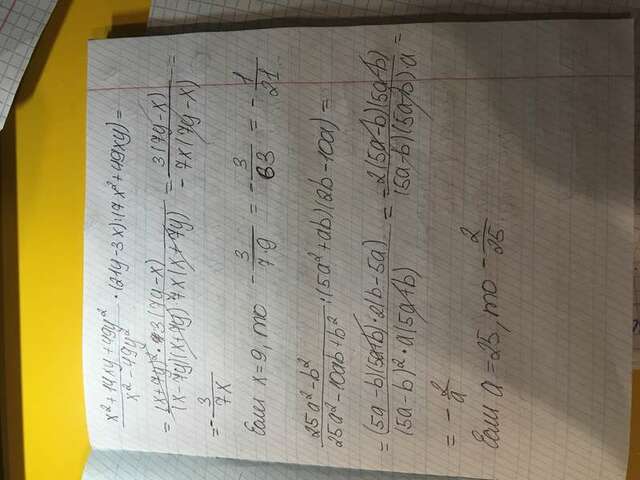 x² + 14xy + 49y² / x² - 49y² · (21y - 3x) : (7x² + 49xy) =
= (x + 7y)² · 3(7y - x) / (x - 7y)(x + 7y) 7x(x + 7y) = 3(7y - x) / - 7x(7y - x) =
= - 3 / 7x
Если x = 9, то - 3 / 7·9 = - 3 / 63 = - 1 / 21
25a² - b² / 25a² - 10ab + b² : (5a² + ab)(2b - 10a) =
= (5a - b)(5a + b) · 2(b - 5a) / (5a - b)² · a(5a + b) = - 2(5a - b)(5a - b) / (5a - b)(5a - b) · a =
= - 2 / a
Если a = 25, то - 2 / 25